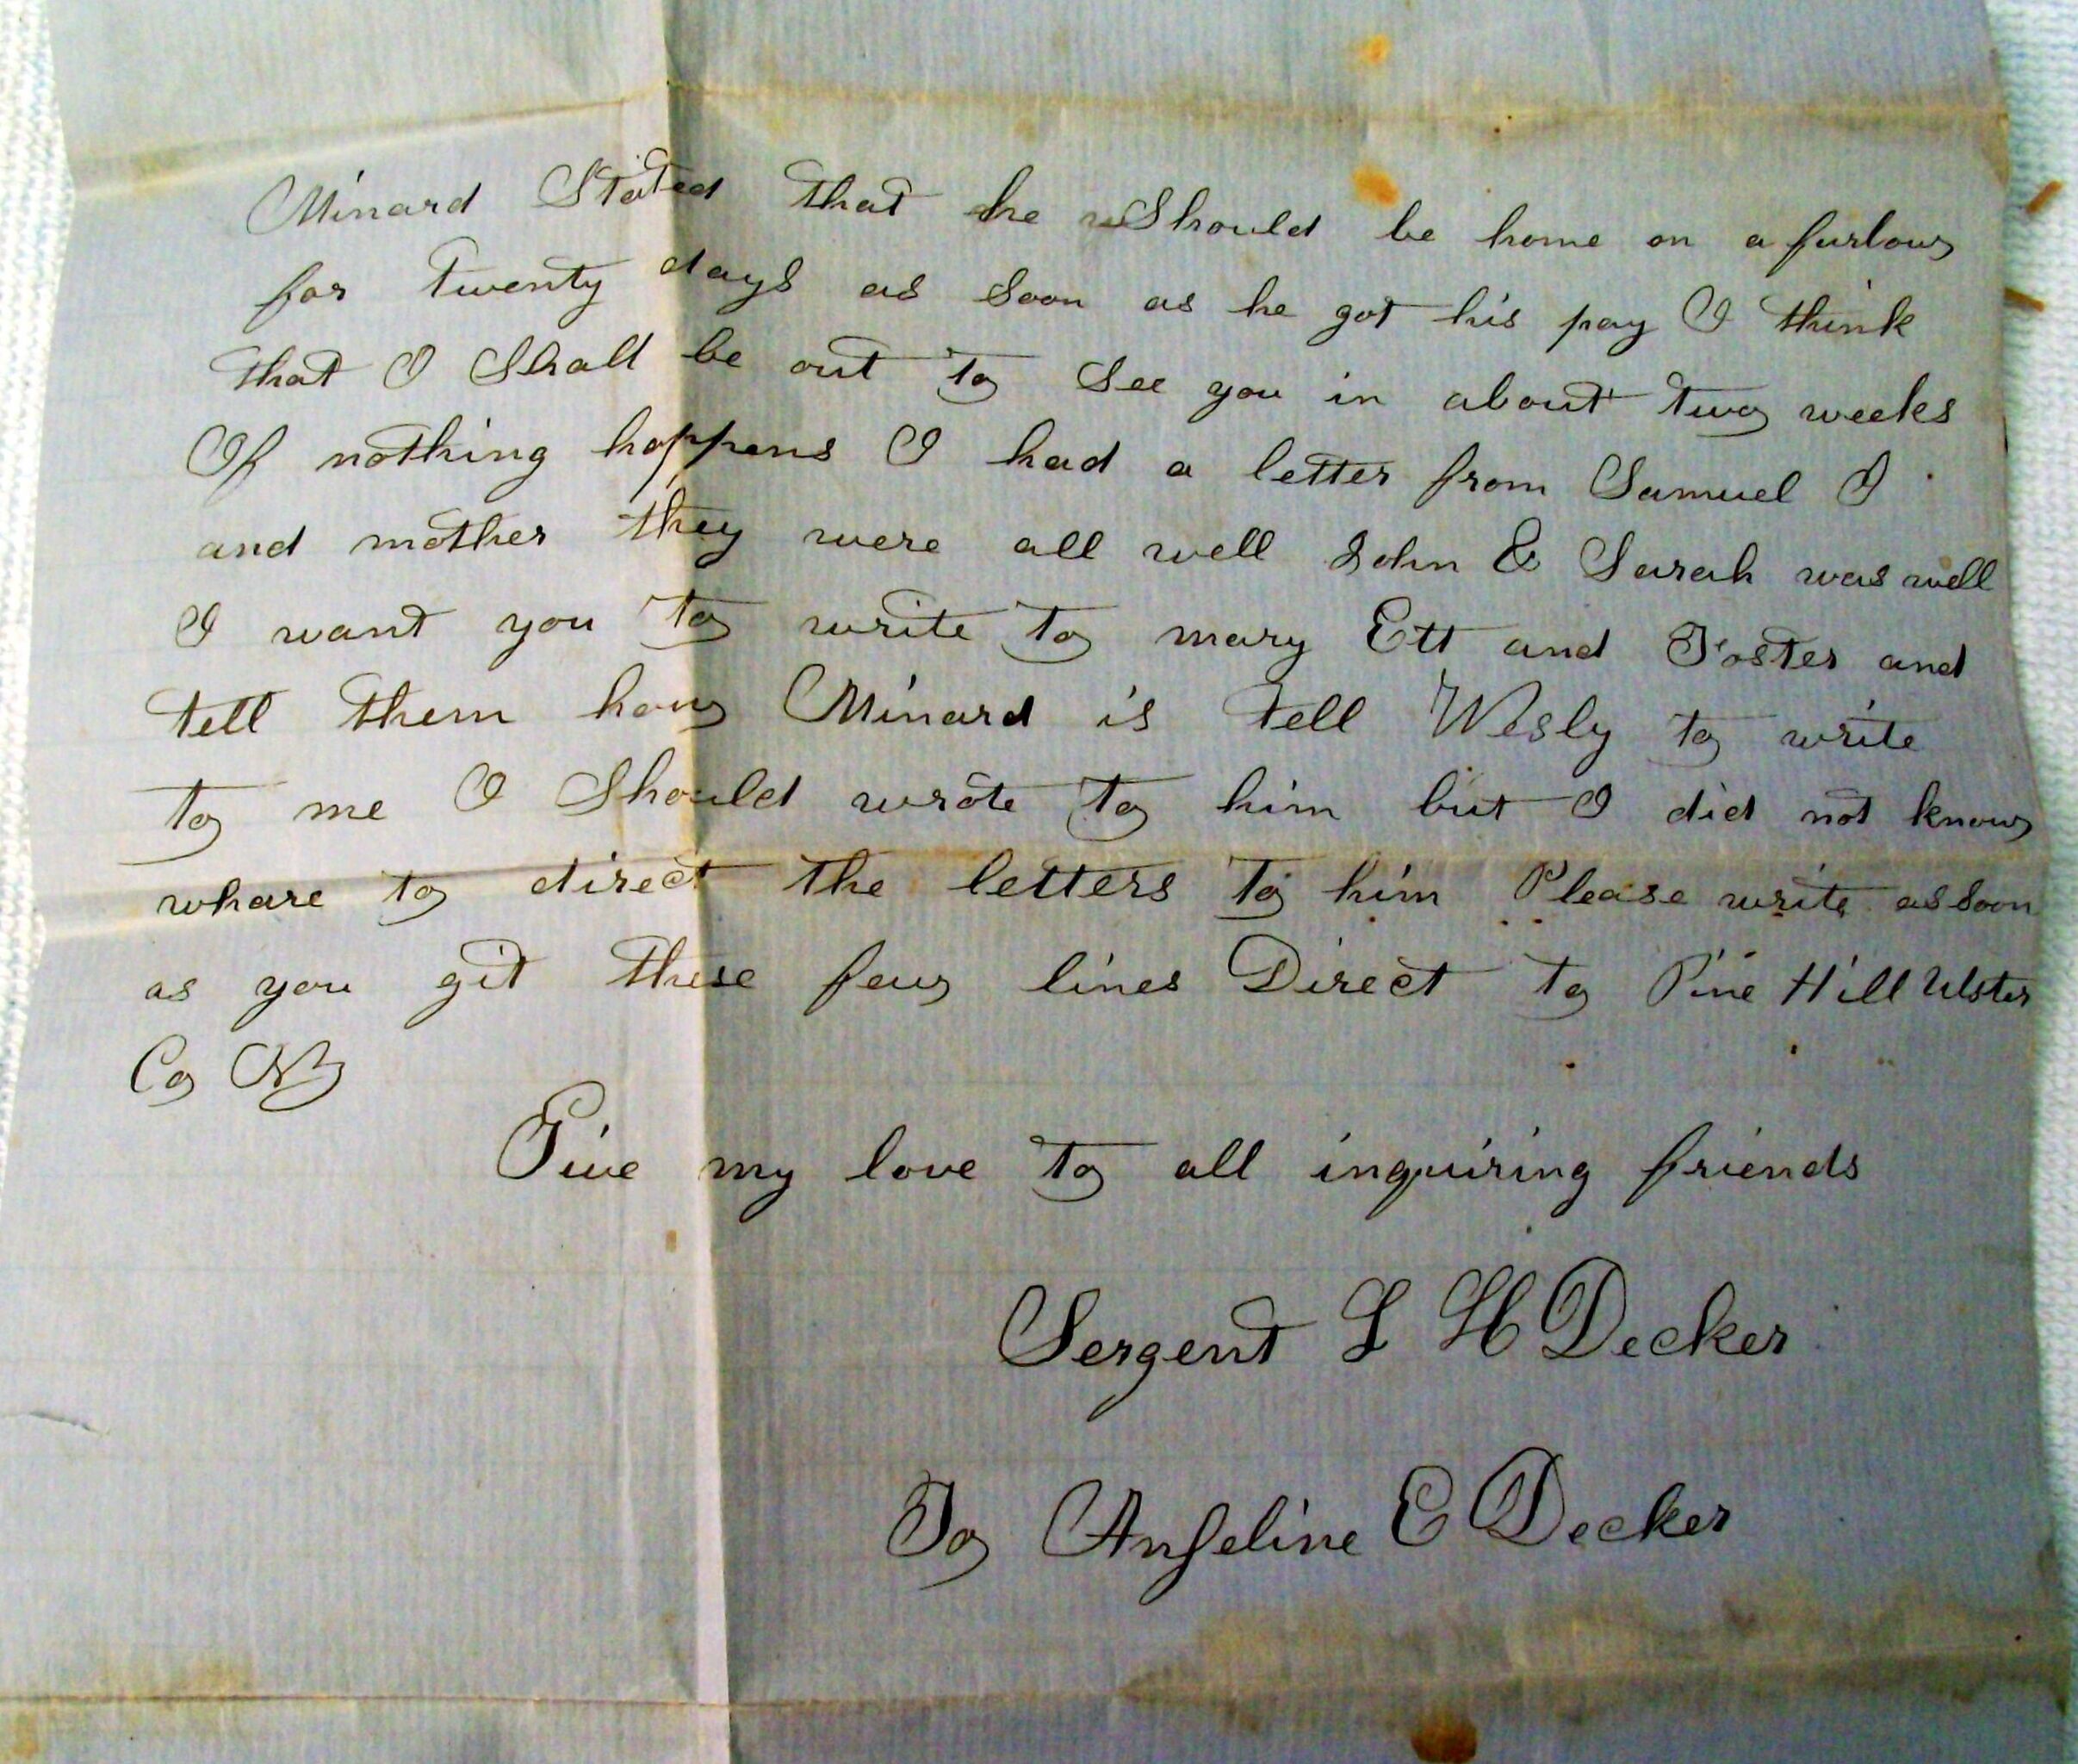 Minard Stated that he Should be home on a furlow
for Twenty days as Soon as he got his pay I think
that I Shall be out to See you in about two weeks
If nothing happens I had a letter from Samuel I
and mother they were all well John & Sarah was well
I want you to write to mary Ett and Foster and
tell them how Minard is tell Wesly to write
to me I Should wrote to him but I did not know
whare to direct the letters to him Please write as soon
as you git these few lines Direct to Pine Hill Ulster
Co NY
Give my love to all inquiring friends
Sergent L H Decker
To Angeline E Decker